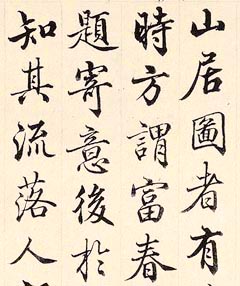 山居圖者有
時方謂富春
題寄意後於
知其流落人